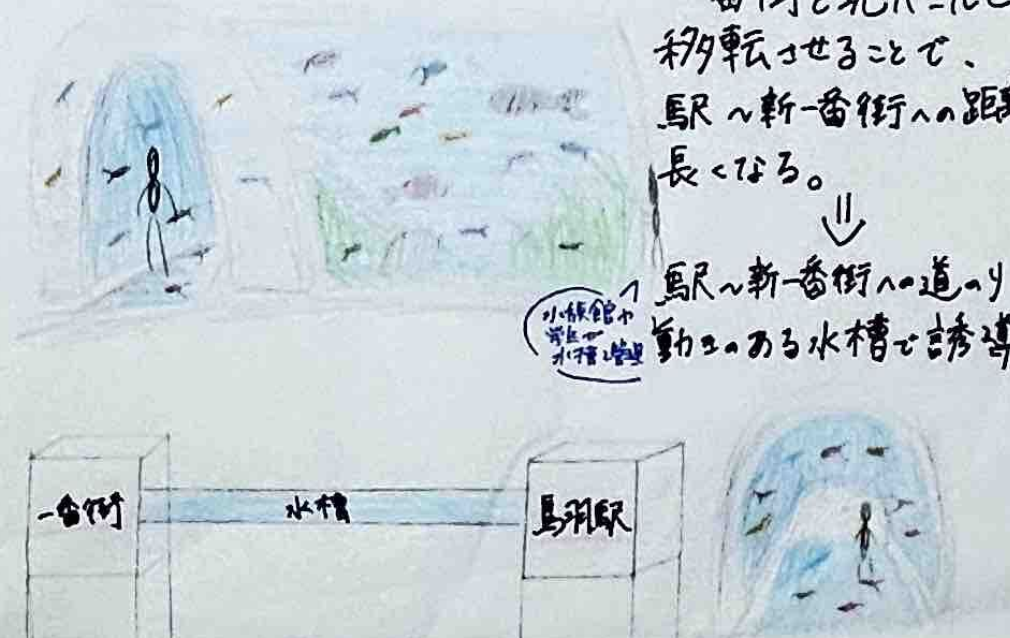 移転させることで、
駅～新一番街への距
長くなる。
⇓
駅～新一番街への道のり
動きのある水槽で誘導
水族館や
水槽を管理
一番街
水槽
鳥羽駅